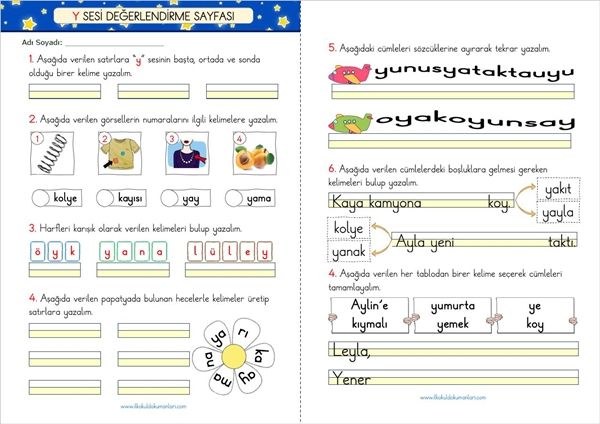 Y SESİ DEĞERLENDİRME SAYFASI
Adı Soyadı:
1. Aşağıda verilen satırlara "y" sesinin başta, ortada ve sonda
olduğu birer kelime yazalım.
2. Aşağıda verilen görsellerin numaralarını ilgili kelimelere yazalım.
1 2 3 4
kolye kayısı yay yama
3. Harfleri karışık olarak verilen kelimeleri bulup yazalım.
ö y k y a n a l ü l e y
4. Aşağıda verilen papatyada bulunan hecelerle kelimeler üretip
satırlara yazalım.
ya rı ka ay ma na
www.ilkokuldokumanlari.com
5. Aşağıdaki cümleleri sözcüklerine ayırarak tekrar yazalım.
yunusyataktauyu
oyakoyunsay
6. Aşağıda verilen cümlelerdeki boşluklara gelmesi gereken
kelimeleri bulup yazalım.
Kaya kamyona koy.
yakıt
yayla
kolye
yanak
Ayla yeni taktı.
4. Aşağıda verilen her tablodan birer kelime seçerek cümleleri
tamamlayalım.
Aylin'e yumurta ye
kıymalı yemek koy
Leyla,
Yener
www.ilkokuldokumanlari.com